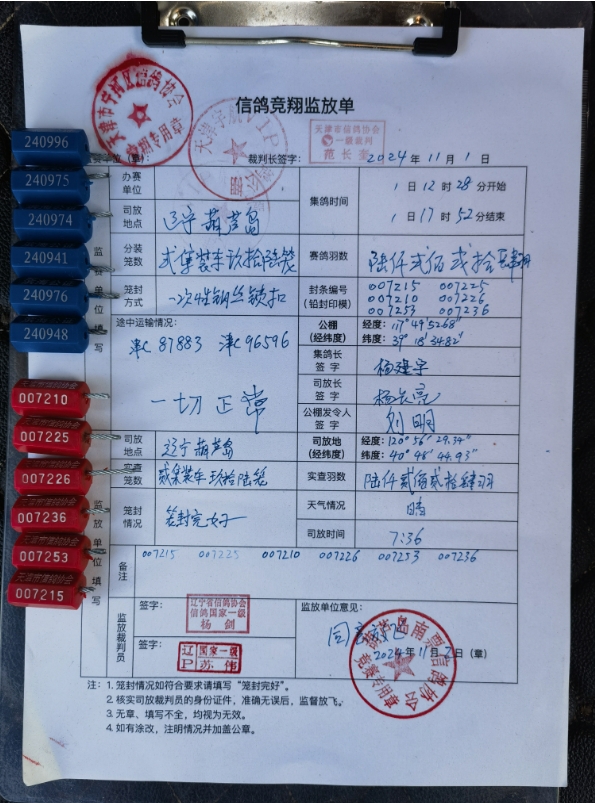 信鸽竞翔监放单
天津市宁河区信鸽协会
专用章
天津市信鸽协会
一级裁判
裁判长签字：
2024年11月1日
办赛单位
集鸽时间
1日12时28分开始
1日17时52分结束
司放地点
辽宁葫芦岛
分装笼数
贰集装车玖拾陆笼
赛鸽羽数
陆仟贰佰贰拾肆羽
笼封方式
一次性钢丝锁扣
封条编号
(铅封印模)
007215 007225
007210 007226
007253 007236
途中运输情况：
津C 87883 津C 96596
一切正常
公棚
(经纬度)
经度：117°49′52.68″
纬度：39°18′34.82″
集鸽长签字
杨建宇
司放长签字
杨长亮
公棚发令人签字
刘明
监赛单位填写
司放地点
辽宁葫芦岛
司放地
(经纬度)
经度：120°56′29.34″
纬度：40°48′44.93″
实查笼数
贰集装车玖拾陆笼
实查羽数
陆仟贰佰贰拾肆羽
笼封情况
笼封完好
天气情况
晴
司放时间
7:36
监放单位填写
备注
007215 007225 007210 007226 007253 007236
监放裁判员
签字：
辽宁省信鸽协会
信鸽国家一级
杨剑
签字：
辽 国家一级
P 苏伟
监放单位意见：
2024年11月2日（章）
南票信鸽协会
竞赛专用章
注：1. 笼封情况如符合要求请填写“笼封完好”。
2. 核实司放裁判员的身份证件，准确无误后，监督放飞。
3. 无章、填写不全，均视为无效。
4. 如有涂改，注明情况并加盖公章。
240996
240975
240974
240941
240976
240948
007210
007225
007226
007236
007253
天津市信鸽协会
007215